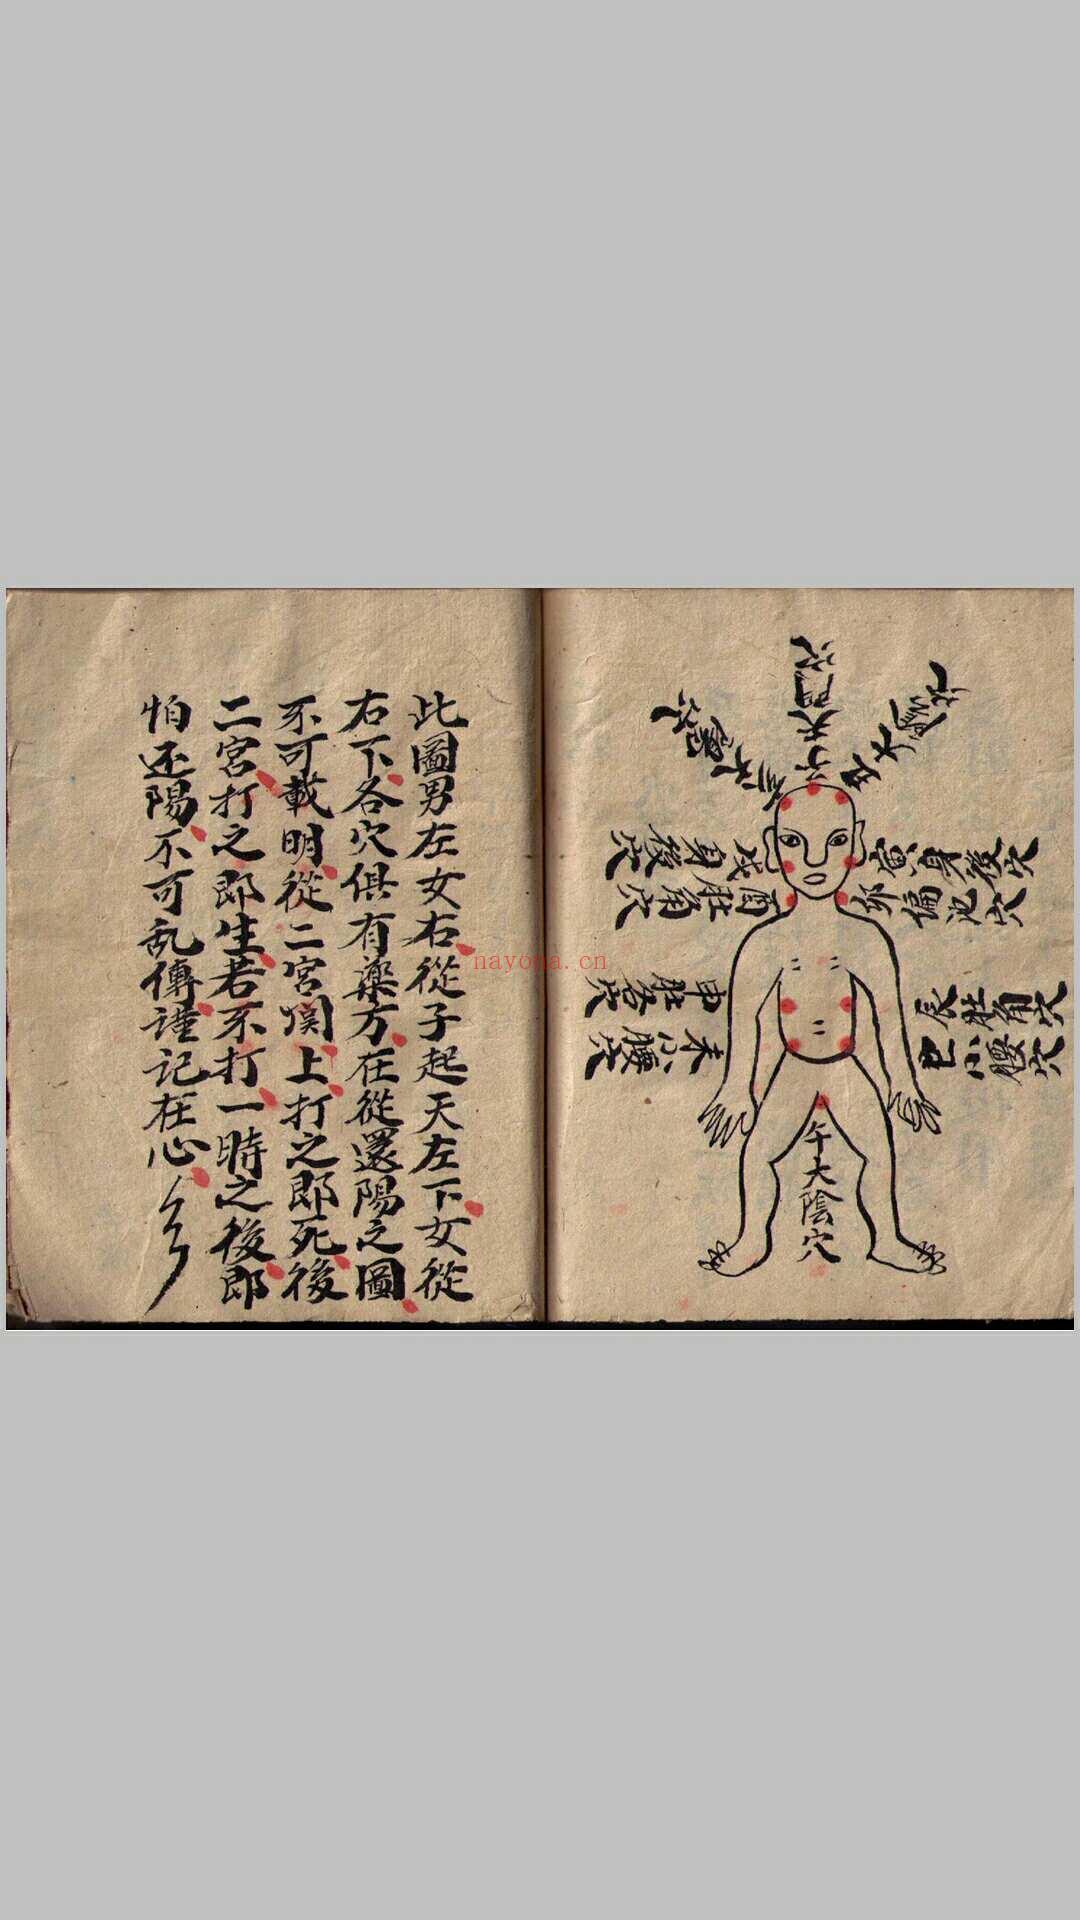 子天門穴
寅身後穴
卯偏池穴
辰肚角穴
巳小腰穴
午大陰穴
未小腰穴
申肚角穴
酉肚角穴
戌身後穴
此圖男左女右從子起天左下女從
右下各穴俱有藥方在從還陽之圖
不可載明從二宮 上打之即死後
二宮打之即生若不打一時之後即
怕还陽不可乱傳謹記在心
nayona.cn